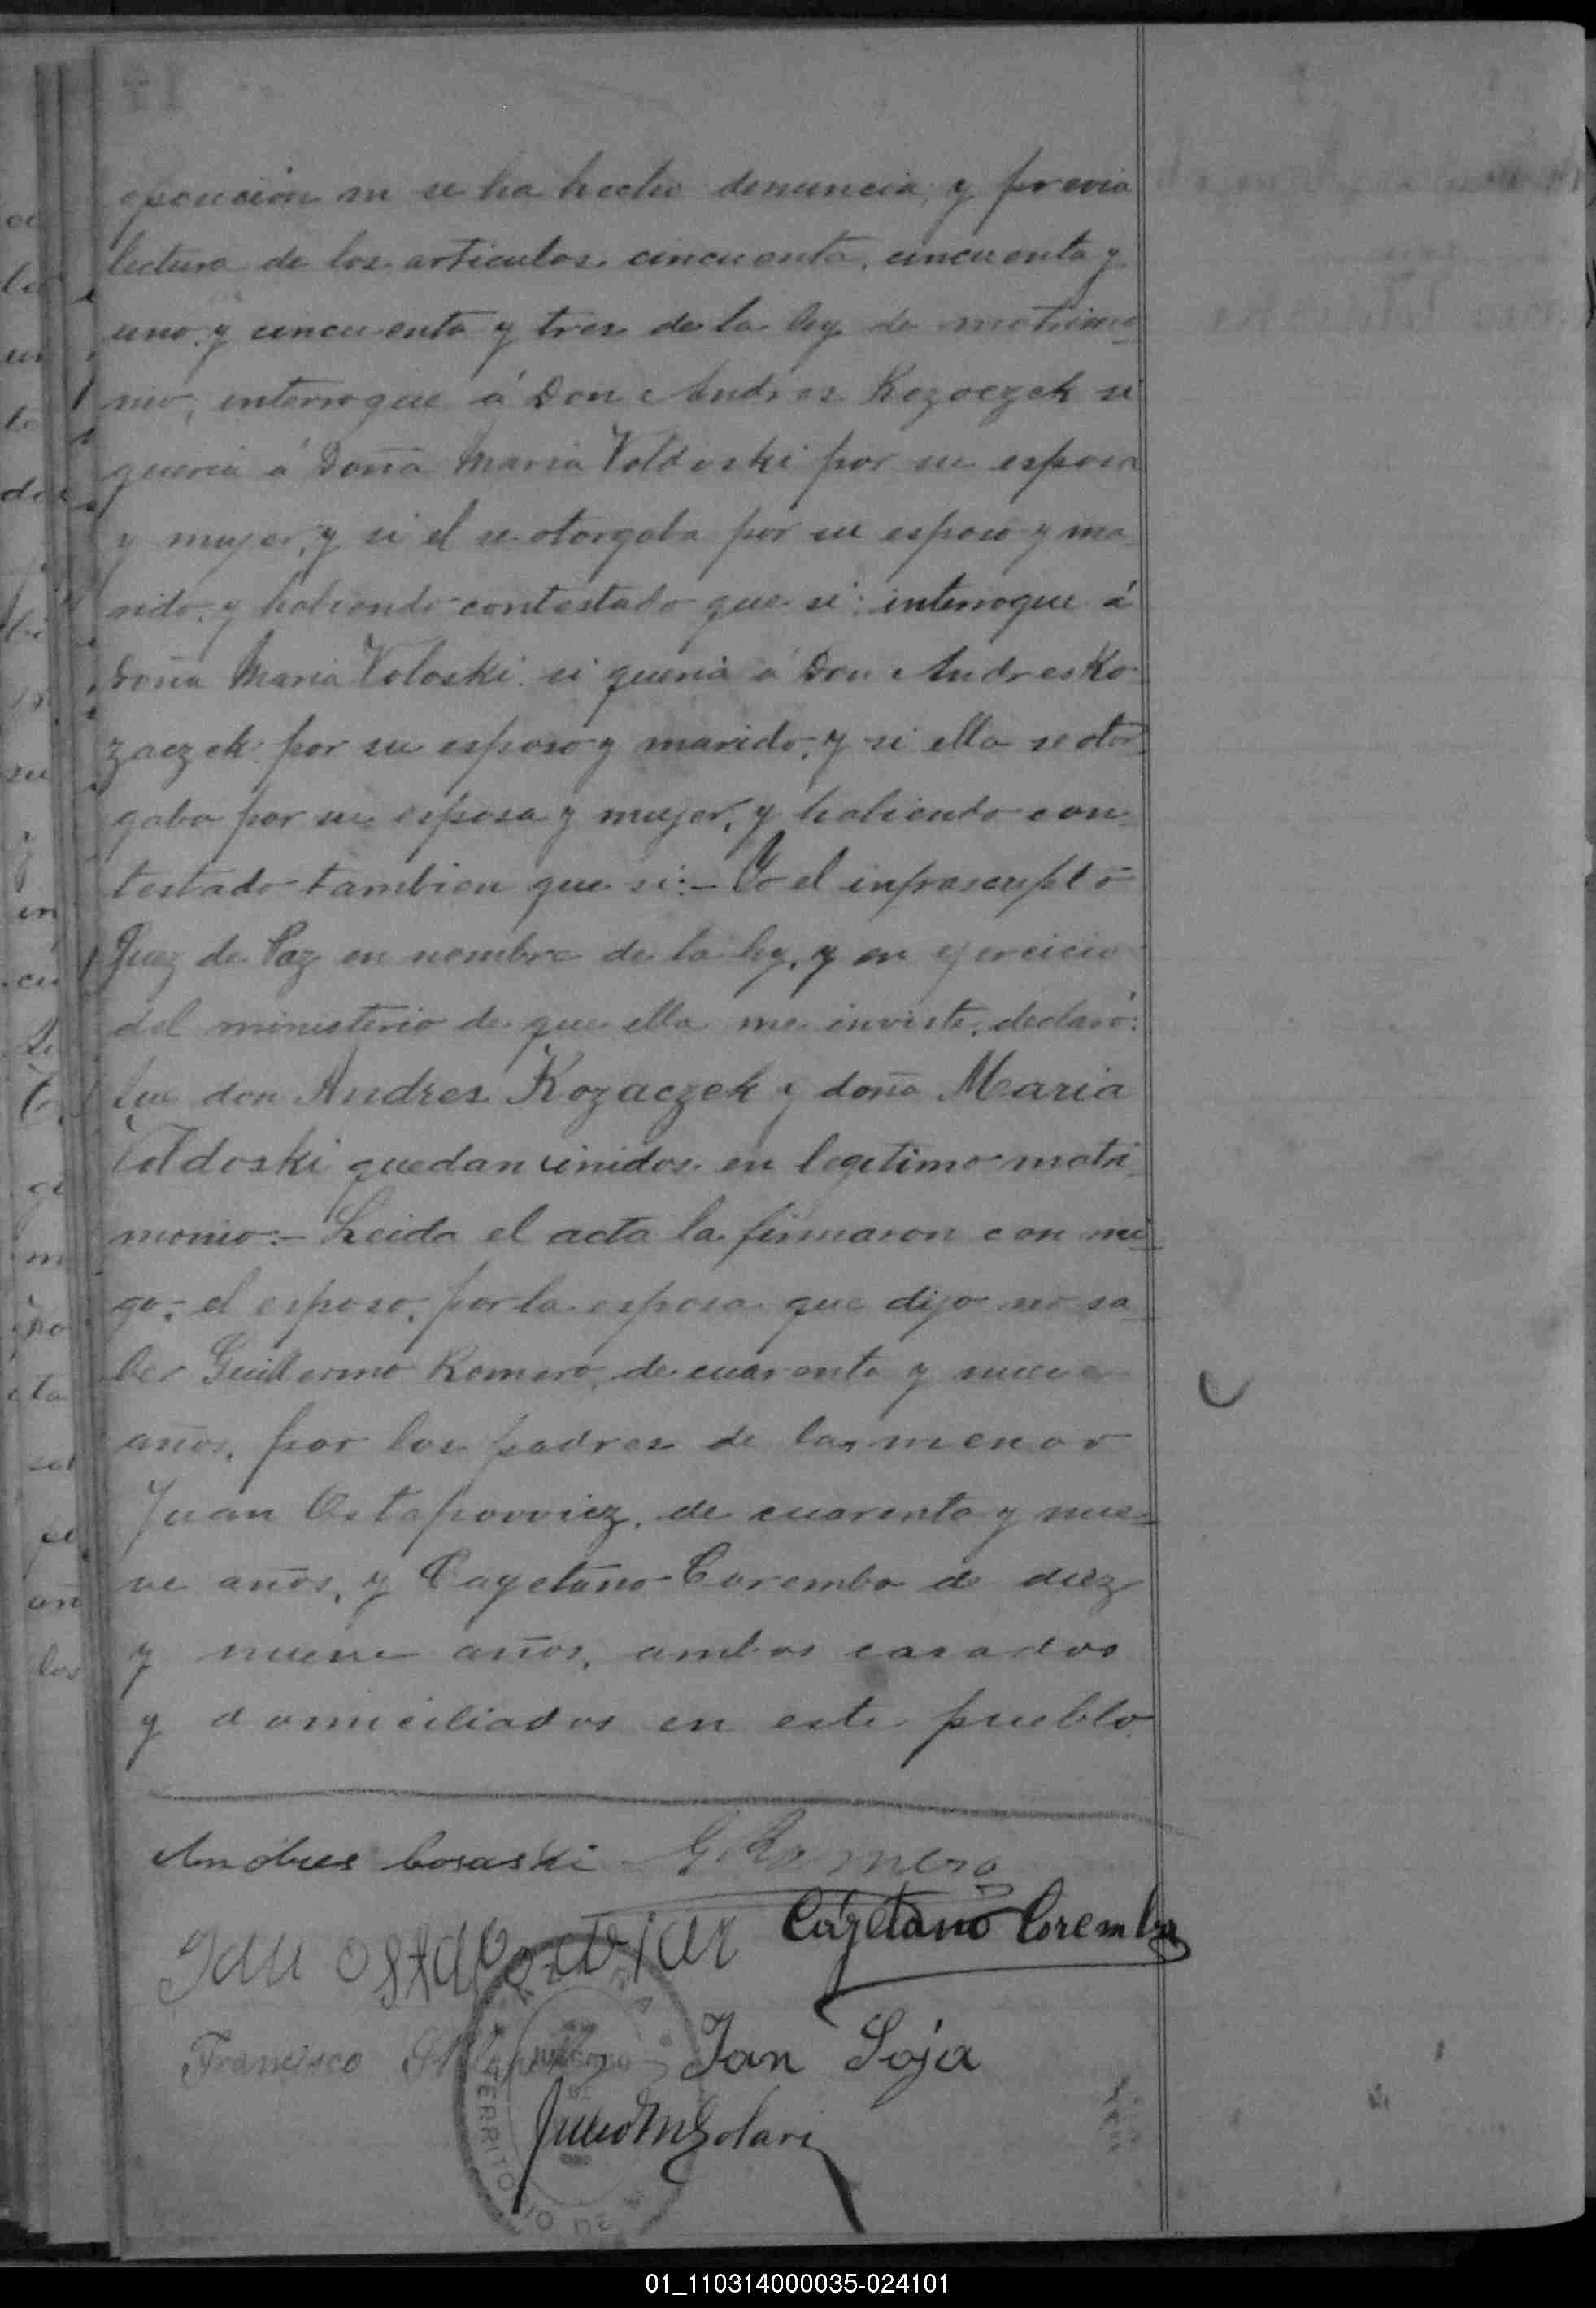 oposicion ni se ha hecho denuncia, y previa
lectura de los articulos cincuenta, cincuenta y
uno y cincuenta y tres de la ley de matrimo-
nio, interrogue á Don Andres Kozaczek si
queria á Doña Maria Voldoski por su esposa
y mujer, y si el se otorgaba por su esposo y ma-
rido, y habiendo contestado que si: interrogue á
Doña Maria Voloski si queria á Don Andres Ko-
zaczek por su esposo y marido, y si ella se otor-
gaba por su esposa y mujer, y habiendo con-
testado tambien que si:- Yo el infrascripto
Juez de Paz en nombre de la ley, y en ejercicio
del ministerio de que ella me inviste, declaró:
Que don Andres Kozaczek y doña Maria
Voldoski quedan unidos en legitimo matri-
monio:- Leida el acta la firmaron con mi-
go:- el esposo, por la esposa que dijo no sa-
ber Guillermo Romero, de cuarenta y nueve
años, por los padres de la menor
Juan Ostapowiez, de cuarenta y nue-
ve años, y Cayetano Coremba de diez
y nueve años, ambos casados
y domiciliados en este pueblo.
Andres Cosaski G. Romero
Jan Cayetano Coremba
Francisco Jan Soja
Julio M Solari
TERRITORIO DE
01_110314000035-024101